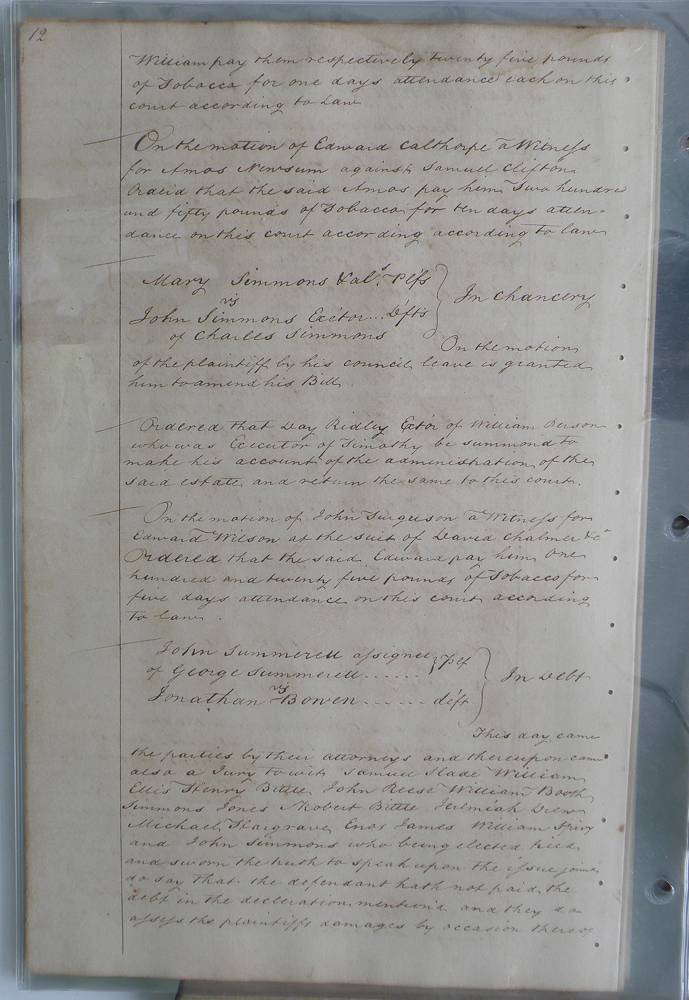 12
William pay them respectively twenty five pounds
of Tobacco for one days attendance each on this
court according to Law
On the motion of Edward Calthorpe a Witness
for Amos Newsum against Samuel Clifton
Ordered that the said Amos pay him Two hundred
and fifty pounds of Tobacco for ten days atten-
dance on this court according according to law
Mary Simmons &al.s Plfs
vs
In Chancery
John Simmons Exetor... Defts
of Charles Simmons
On the motion
of the plaintiff by his council leave is granted
him to amend his Bill
Ordered that Day Ridley Extor of William Person
who was Executor of Timothy be summond to
make his account of the administration of the
said estate and return the same to this court.
On the motion of John Furguson a Witness for
Edward Wilson at the suit of David Chalmer &c
Ordered that the said Edward pay him One
hundred and twenty five pounds of Tobacco for
five days attendance on this court according
to law.
John Summerell assignee Plf
of George Summerell......
In Debt
vs
Jonathan Bowen...... deft
This day came
the parties by their attorneys and thereupon came
also a Jury to wit Samuel Slade William
Ellis Henry Bittle John Reese William Booth
Simmons Jones Robert Bittle Jeremiah Drew
Michael Hargrave Enos James William Spivy
and John Simmons who being elected tried
and sworn the truth to speak upon the issue joined
do say that the defendant hath not paid the
debt in the decleration mention'd and they do
assess the plaintiffs damages by occasion thereof